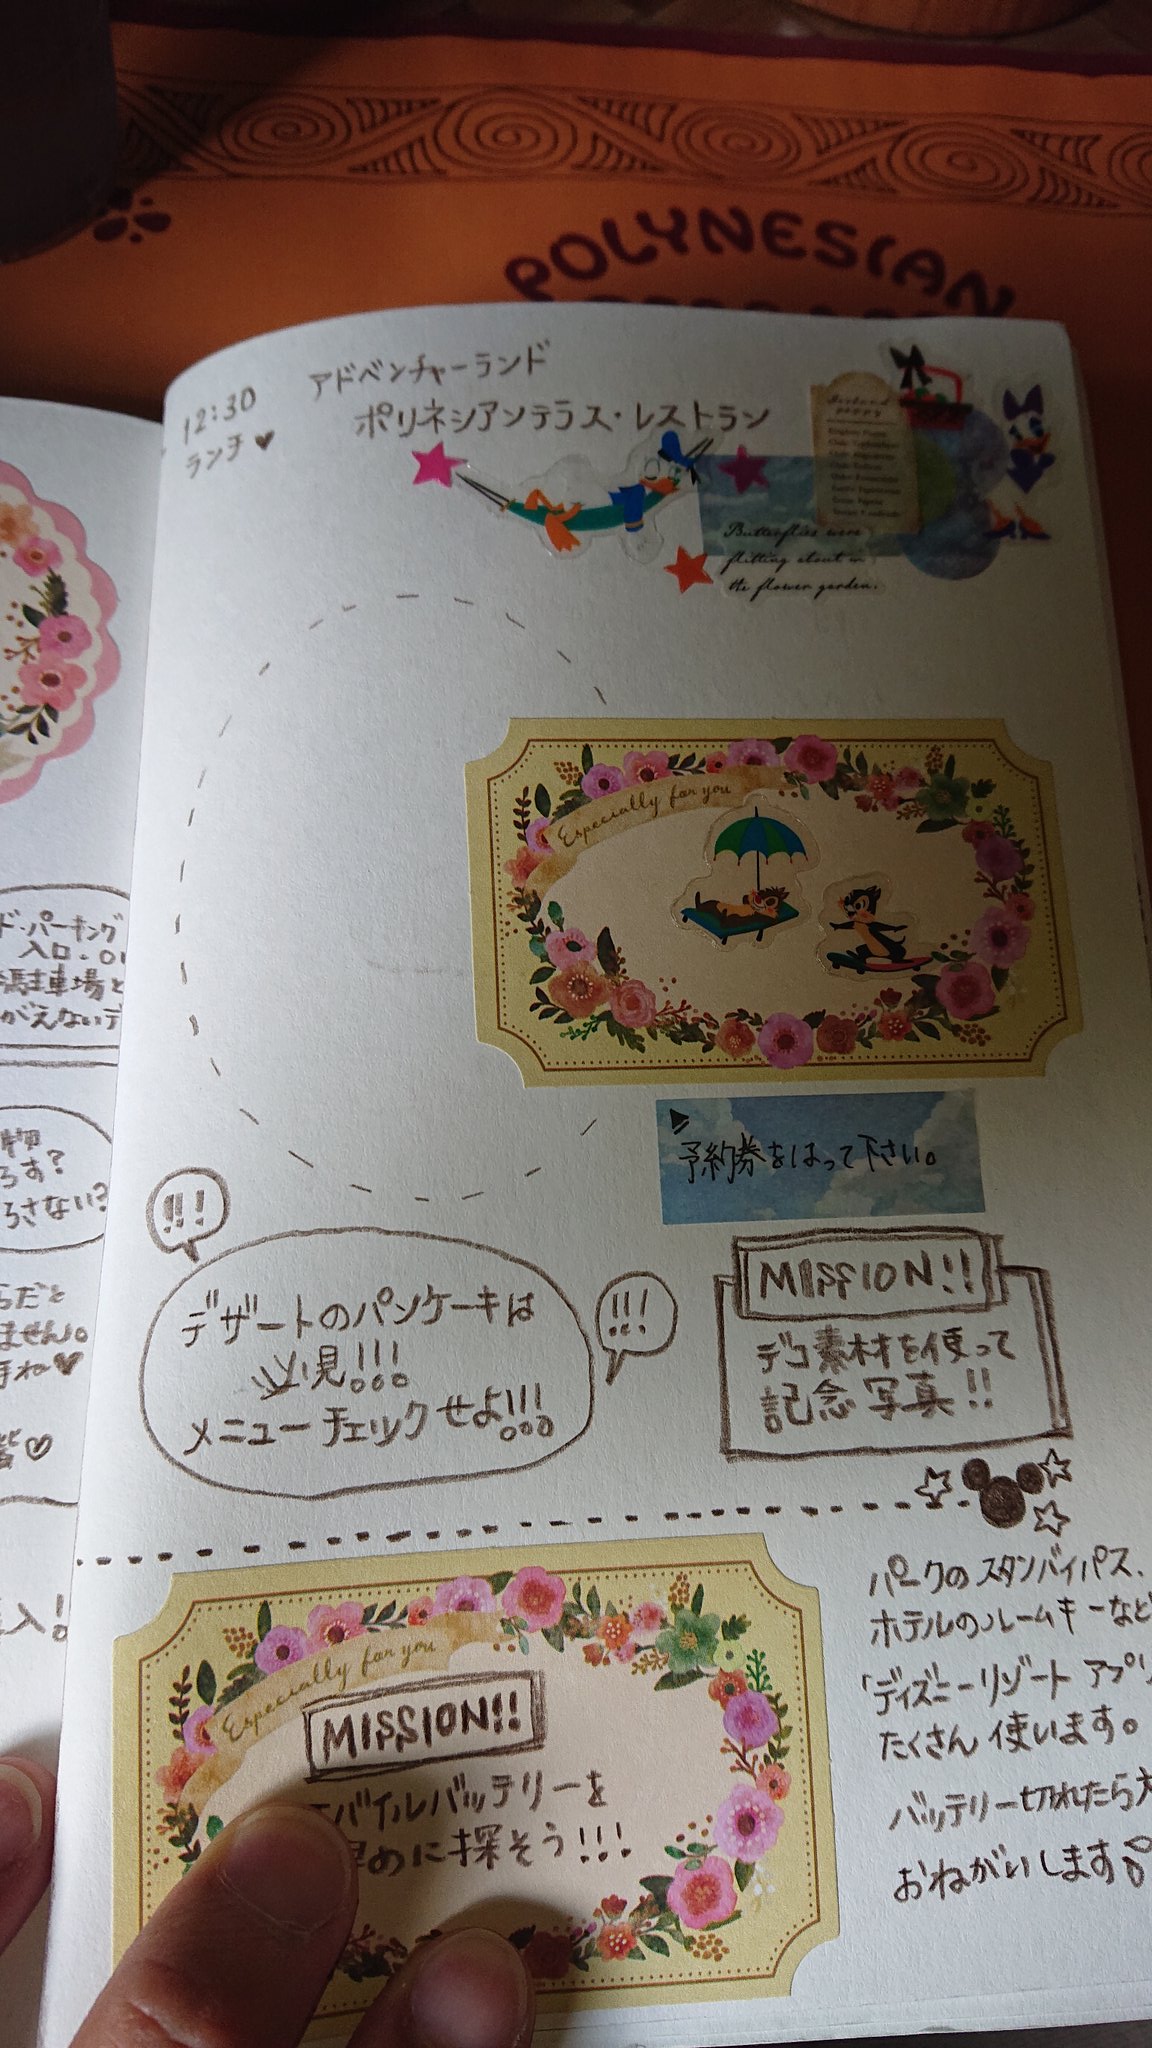 POLYNESIAN
12:30
ランチ♥
アドベンチャーランド
ポリネシアンテラス・レストラン
Butterflies were
flitting about in
the flower garden.
Especially for you
予約券をはって下さい。
!!!
デザートのパンケーキは
必見!!!
メニューチェックせよ!!!
!!!
MISSION!!
デコ素材を使って
記念写真!!
ド・パーキング
入口.01
駐車場と
がえないデ
物
ろす?
ろさない?
らだと
ません。
手ね♥
皆♡
入!
Especially for you
MISSION!!
モバイルバッテリーを
早めに探そう!!!
パークのスタンバイパス、
ホテルのルームキーなど
「ディズニーリゾートアプリ
たくさん使います。
バッテリー切れたら大
おねがいします